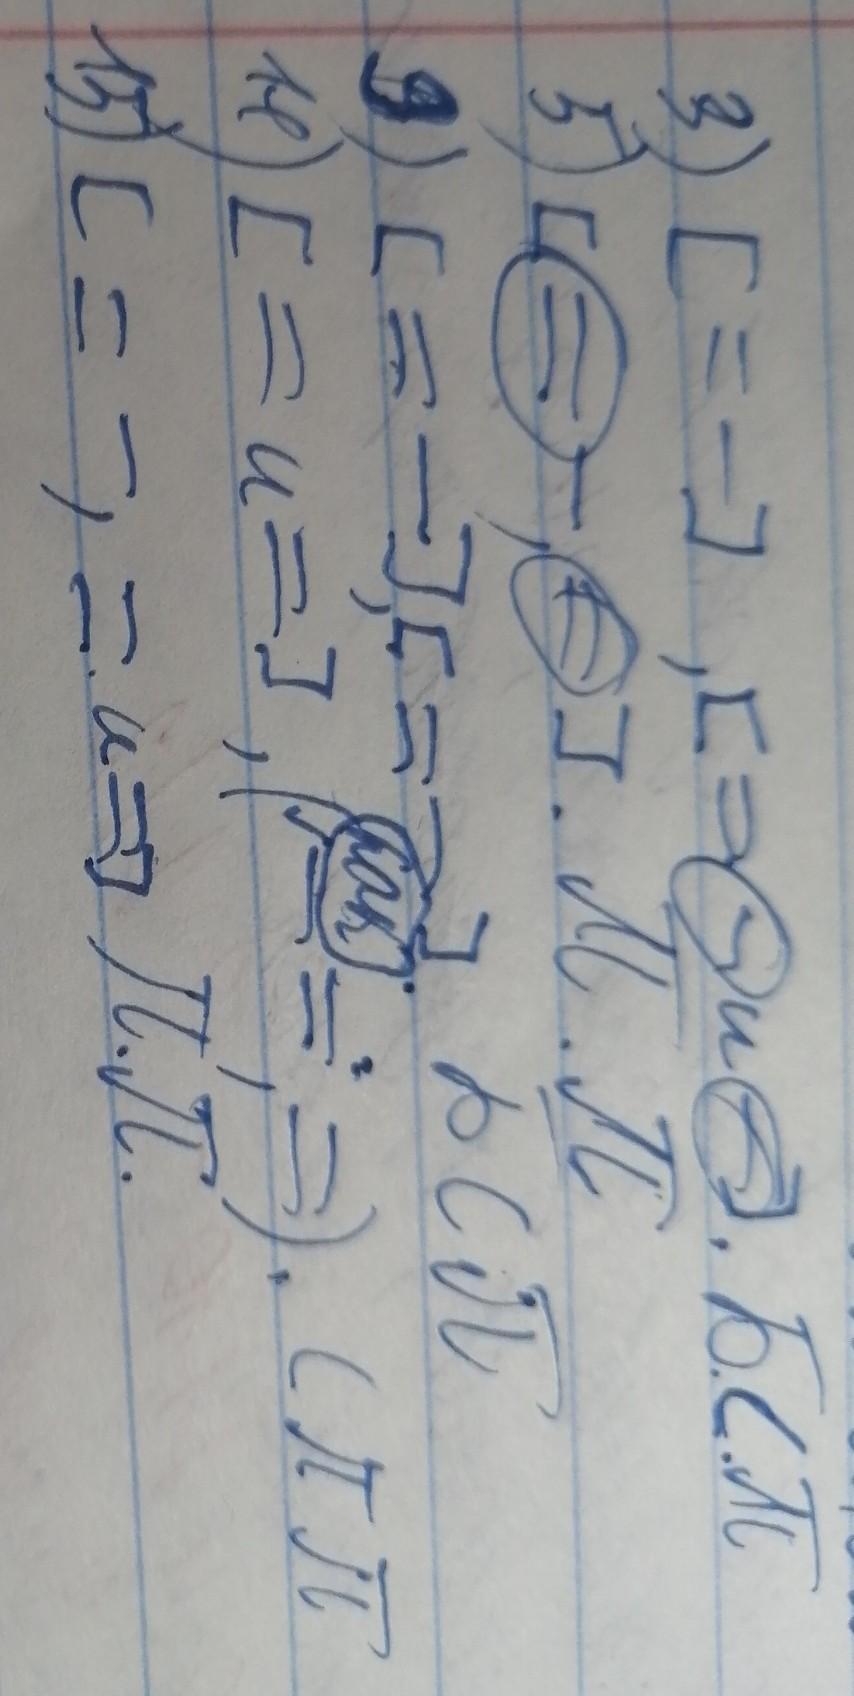 3) [= –], [= – и –]. БСП
5) [= –, =]. П.П
9) [= –], [= –]. БСП
12) [= и =], (как = =, =). СПП
15) [= –, = и =] П.П.